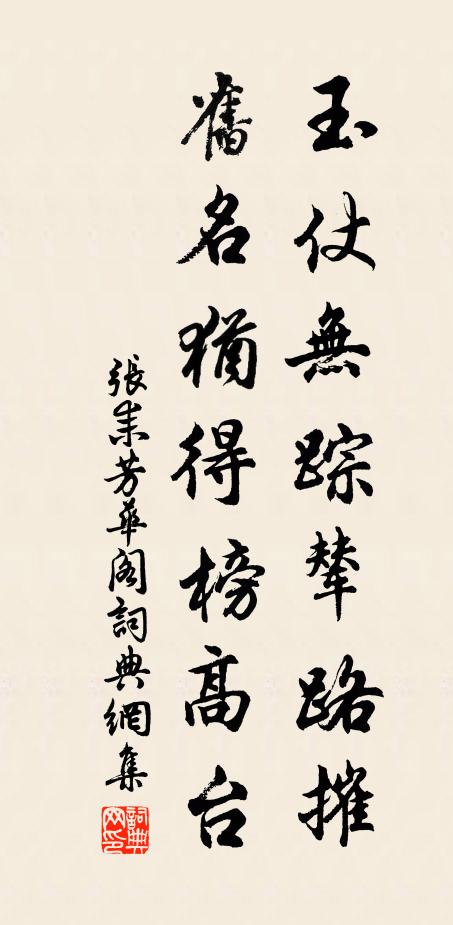 玉仗無踪輦路摧
舊名猶得榜高台
張耒芳華閣詞典網集
詞典网印